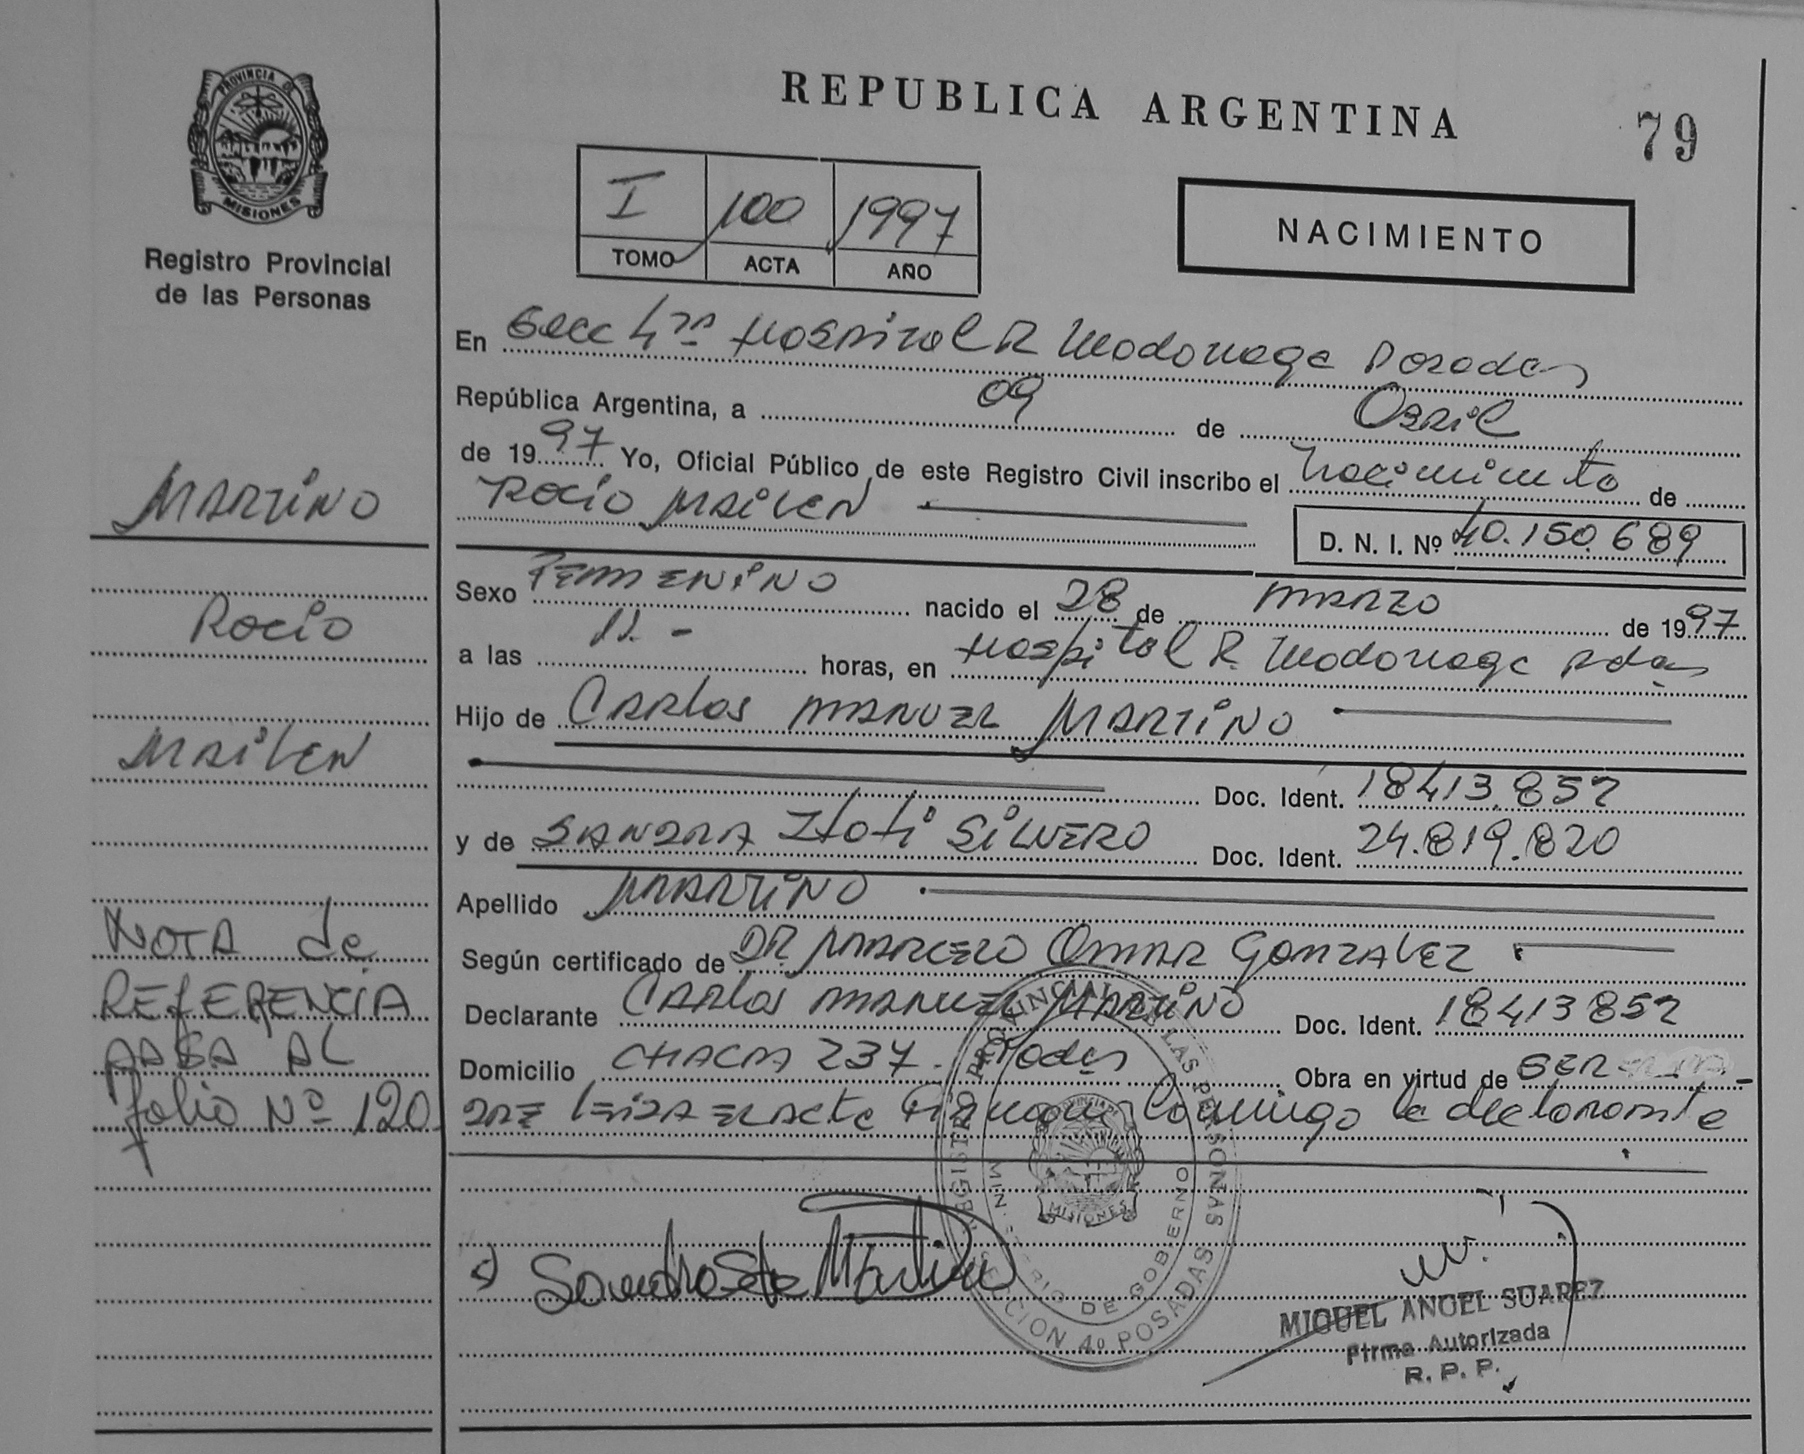 PROVINCIA DE
MISIONES
Registro Provincial
de las Personas
REPUBLICA ARGENTINA
79
I 100 1997
TOMO ACTA AÑO
NACIMIENTO
En Secc 4ta Hospital R Madariaga Posadas
República Argentina, a 09 de Abril
de 1997 Yo, Oficial Público de este Registro Civil inscribo el Nacimiento de
Rocio Mailen
D. N. I. Nº 40.150.689
Sexo Femenino nacido el 28 de Marzo de 1997
a las 11.- horas, en Hospital R. Madariaga Pdas
Hijo de Carlos Manuel Martino
Doc. Ident. 18413.852
y de Sandra Itati Silvero Doc. Ident. 24.819.820
Apellido Martino
Según certificado de DR Marcelo Omar Gonzalez
Declarante Carlos Manuel Martino Doc. Ident. 18413852
Domicilio Chacra 237. Podas Obra en virtud de ser
leida el acta la declarante
Martino
Rocio
Mailen
Nota de
Referencia
pasa al
folio Nº 120
REGISTRO PROVINCIAL DE LAS PERSONAS
MINISTERIO DE GOBIERNO
MISIONES
SECCION 4º POSADAS
MIGUEL ANGEL SUAREZ
Firma Autorizada
R. P. P.